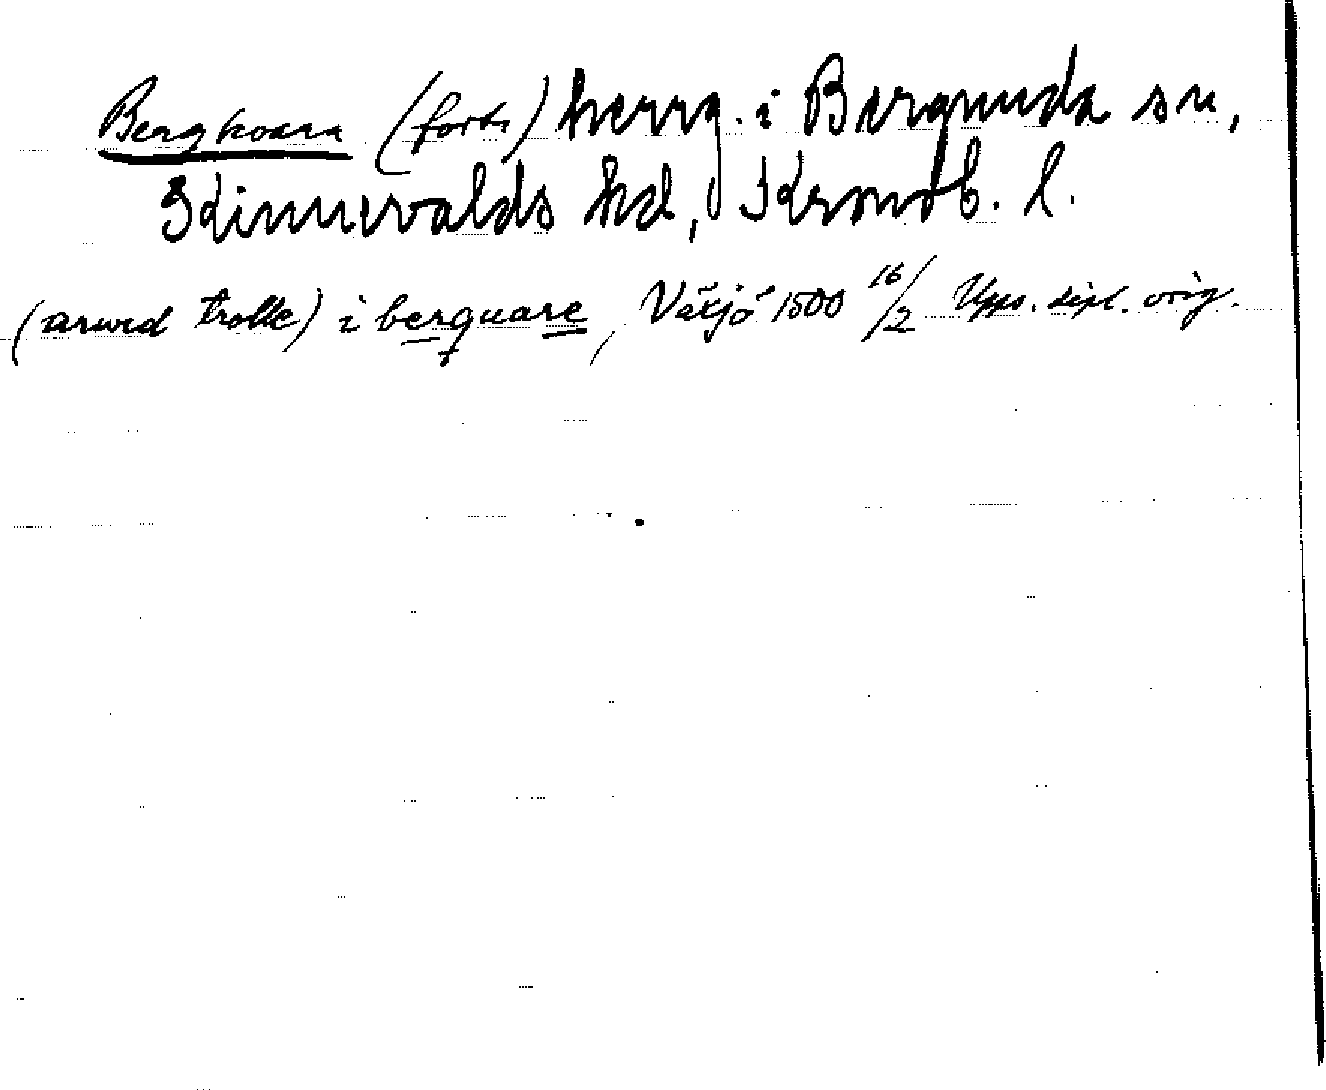 Bergkvara (forts.) herrg. i Bergunda sn,
Kinnevalds hd, Kronob. l.
(arwid trolle) i berquare, Växjö 1500 16/2 Upps. dipl. orig.